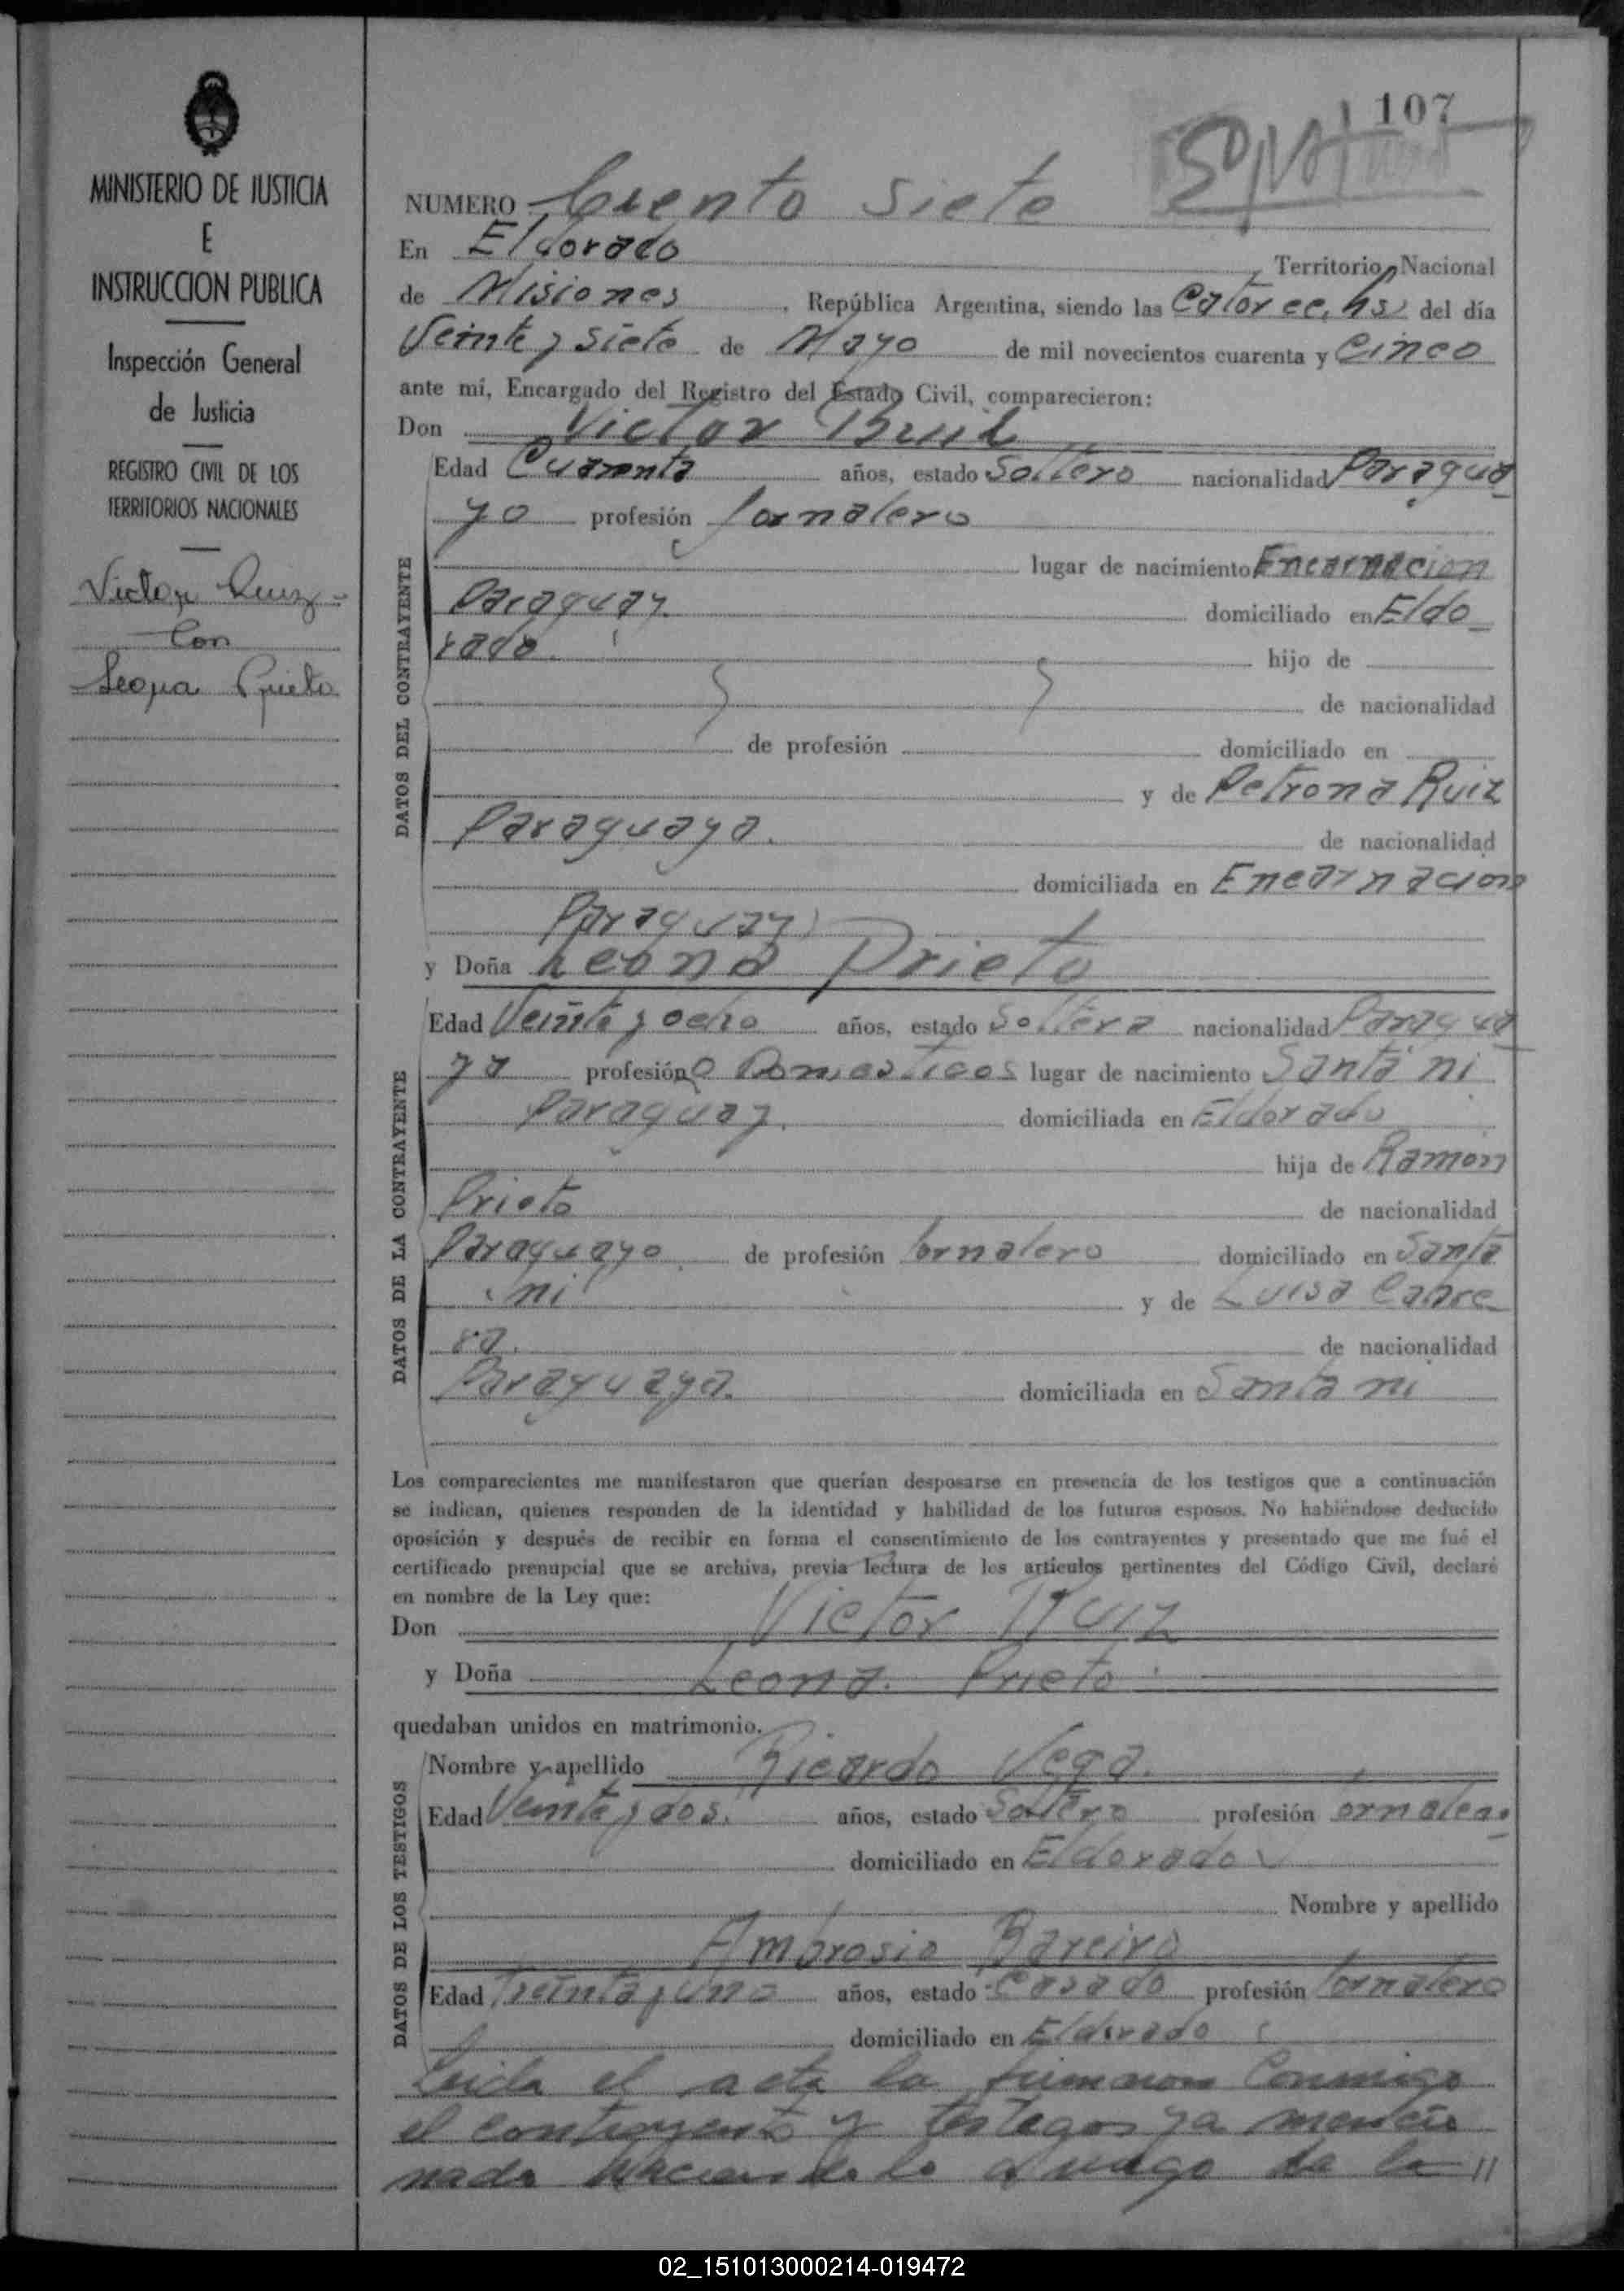 MINISTERIO DE JUSTICIA
E
INSTRUCCION PUBLICA
Inspección General
de Justicia
REGISTRO CIVIL DE LOS
TERRITORIOS NACIONALES
Victor Ruiz
Con
Leona Prieto
107
NUMERO Ciento Siete
En Eldorado Territorio Nacional
de Misiones, República Argentina, siendo las Catorce, hs del día
Veinte y Siete de Mayo de mil novecientos cuarenta y Cinco
ante mí, Encargado del Registro del Estado Civil, comparecieron:
Don Victor Ruiz
DATOS DEL CONTRAYENTE
Edad Cuarenta años, estado Soltero nacionalidad Paragua
yo profesión Jornalero
lugar de nacimiento Encarnacion
Paraguay. domiciliado en Eldo
rado. hijo de
de nacionalidad
de profesión domiciliado en
y de Petrona Ruiz
Paraguaya. de nacionalidad
domiciliada en Encarnacion
Paraguay
y Doña Leona Prieto
DATOS DE LA CONTRAYENTE
Edad Veinte y ocho años, estado Soltera nacionalidad Paragua
ya profesión Q Domesticos lugar de nacimiento Santa ni
Paraguay. domiciliada en Eldorado
hija de Ramon
Prieto de nacionalidad
Paraguayo de profesión Jornalero domiciliado en Santa
ni y de Luisa Cabre
ra. de nacionalidad
Paraguaya. domiciliada en Santa ni
Los comparecientes me manifestaron que querían desposarse en presencia de los testigos que a continuación
se indican, quienes responden de la identidad y habilidad de los futuros esposos. No habiéndose deducido
oposición y después de recibir en forma el consentimiento de los contrayentes y presentado que me fué el
certificado prenupcial que se archiva, previa lectura de los artículos pertinentes del Código Civil, declaré
en nombre de la Ley que:
Don Victor Ruiz
y Doña Leona Prieto
quedaban unidos en matrimonio.
DATOS DE LOS TESTIGOS
Nombre y apellido Ricardo Vega.
Edad Veinte y dos. años, estado Soltero profesión ornalero
domiciliado en Eldorado
Nombre y apellido
Ambrosio Bareiro
Edad Treinta y uno años, estado Casado profesión Jornalero
domiciliado en Eldorado
Leida el acta la firmaron Conmigo
el contrayente y testegos ya mencio
nado haciendolo a ruego de la //
02_151013000214-019472